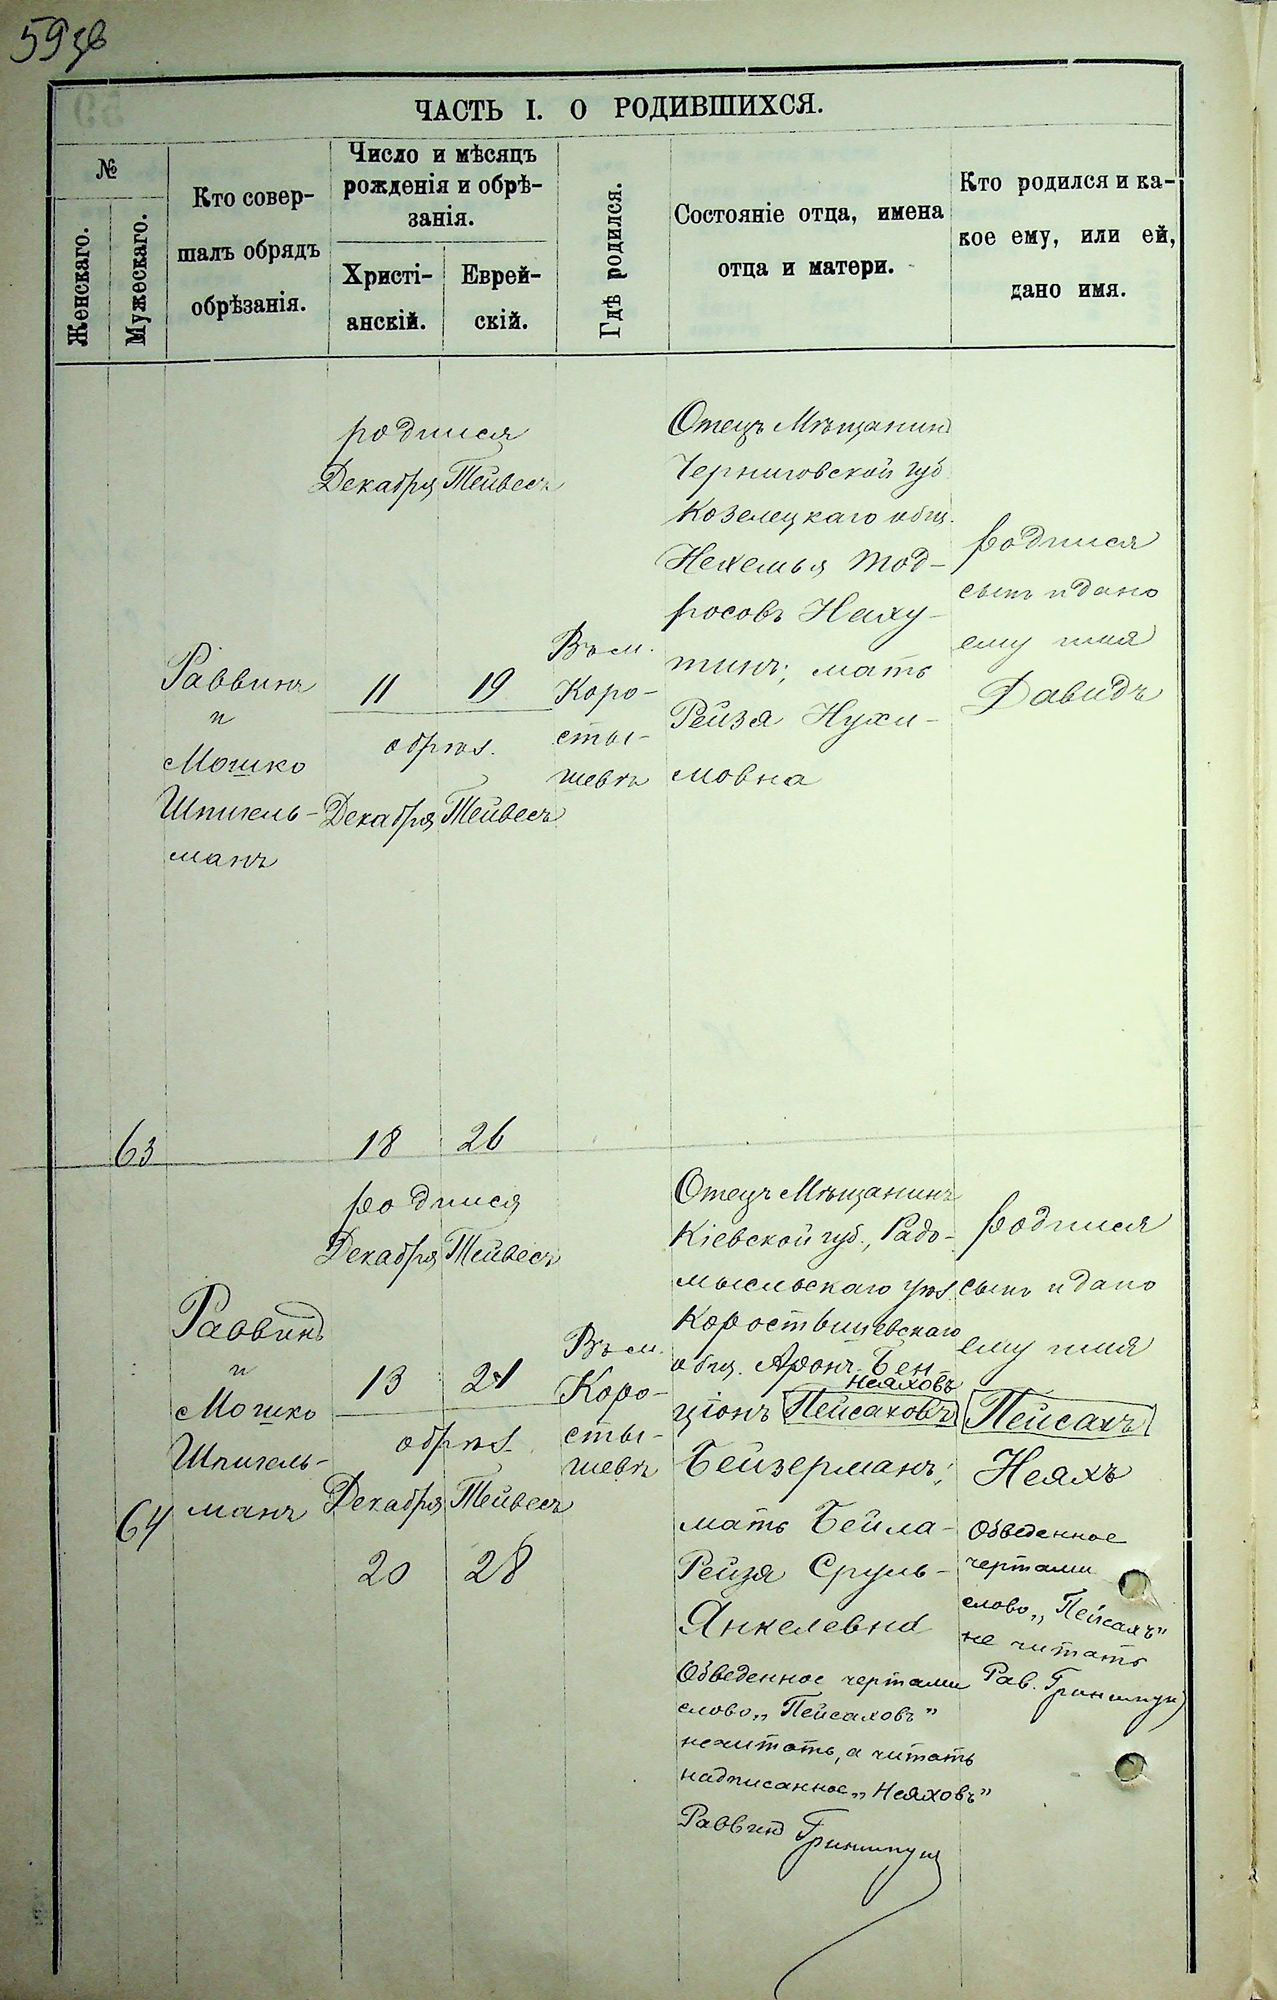 59 зв
ЧАСТЬ I. О РОДИВШИХСЯ.
№
Женскаго.
Мужескаго.
Кто совер-
шалъ обрядъ
обрѣзанія.
Число и мѣсяцъ
рожденія и обрѣ-
занія.
Христі-
анскій.
Еврей-
скій.
Гдѣ родился.
Состояніе отца, имена
отца и матери.
Кто родился и ка-
кое ему, или ей,
дано имя.
63
Раввинъ
и
Мошко
Шпигель-
манъ
родился
Декабря Тейвесъ
11 19
обрѣз.
Декабря Тейвесъ
18 26
Въ м.
Коро-
сты-
шевѣ
Отецъ Мѣщанинъ
Черниговской губ
Козелецкаго общ.
Нехемья Тод-
росовъ Наху-
тинъ; мать
Рейзя Нухи-
мовна
родился
сынъ и дано
ему имя
Давидъ
64
Раввинъ
и
Мошко
Шпигель-
манъ
родился
Декабря Тейвесъ
13 21
обрѣз.
Декабря Тейвесъ
20 28
Въ м.
Коро-
сты-
шевѣ
Отецъ Мѣщанинъ
Кіевской губ., Радо-
мысльскаго уѣз.
Коростышевскаго
общ. Аронъ-Бен
Неяховъ
ціонъ Пейсаховъ
Бейзерманъ;
мать Бейла-
Рейзя Сруль-
Янкелевна
Обведенное чертами
слово „Пейсаховъ"
нечитать, а читать
надписанное „Неяховъ"
Раввинъ
родился
сынъ и дано
ему имя
Пейсахъ
Неяхъ
Обведенное
чертами
слово „Пейсахъ"
не читать
Рав.